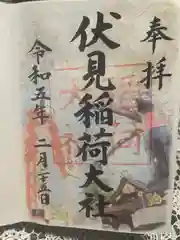 奉拝
伏見稲荷大社
令和五年 二月二十五日